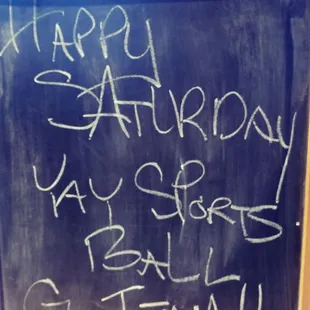 HAPPY
SATURDAY
YAY SPORTS
BALL
GO TEAM